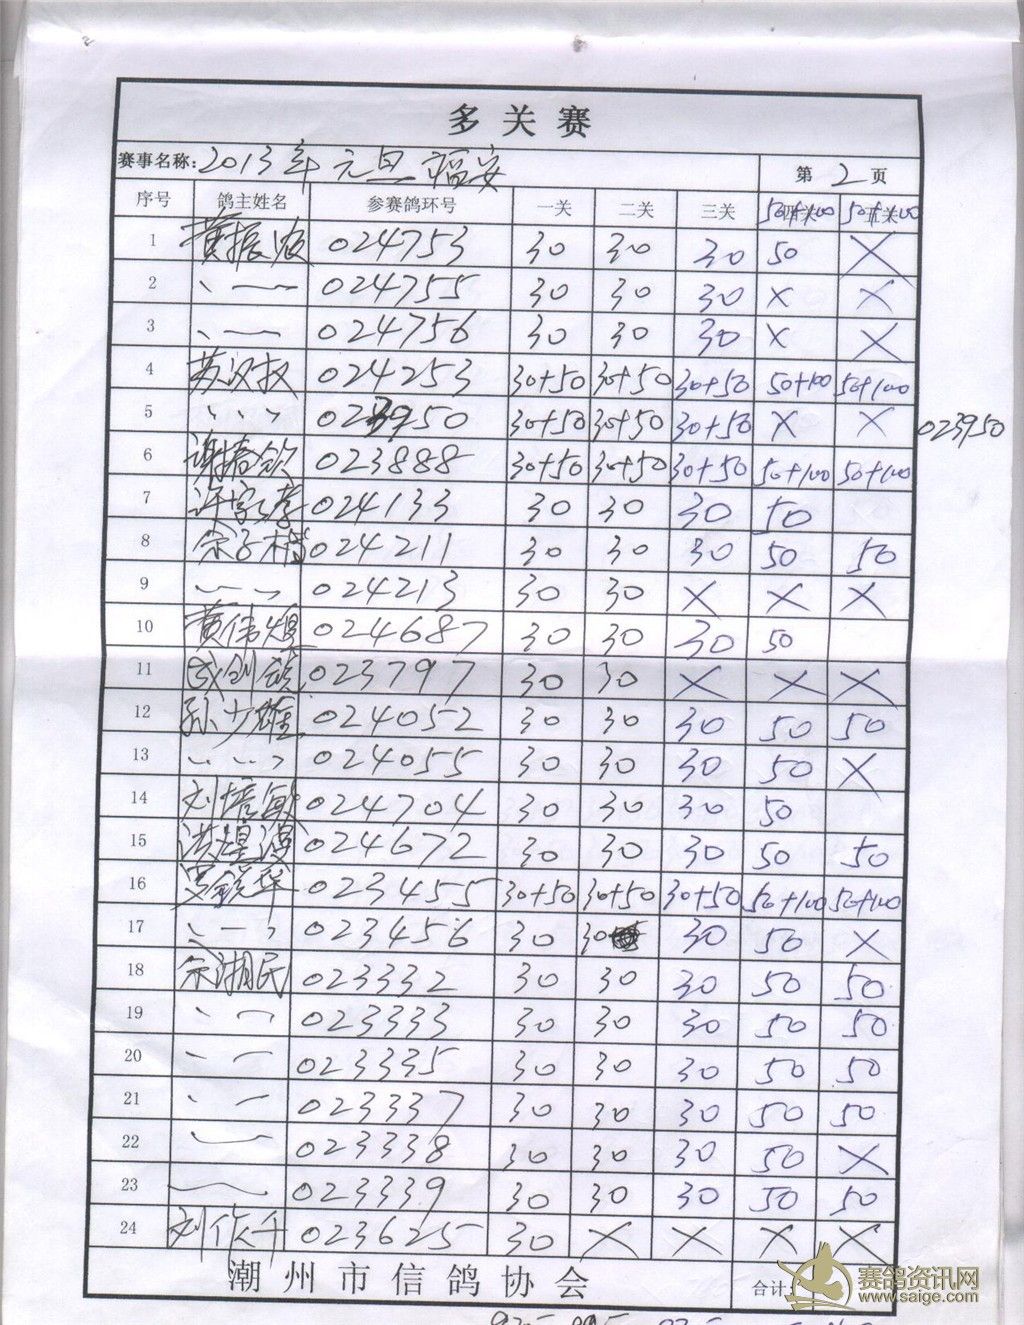 多关赛
赛事名称: 2013年元旦福安 第2页
序号 鸽主姓名 参赛鸽环号 一关 二关 三关
1 黄振农 024753 30 30 30 50 X
2 、一 024755 30 30 30 X X
3 、一 024756 30 30 30 X X
4 苏汉权 024253 30+50 30+50 30+50 50+100 50+100
5 、、、 023950 30+50 30+50 30+50 X X 023950
6 谢春欽 023888 30+50 30+50 30+50 50+100 50+100
7 024133 30 30 30 50
8 余子楷 024211 30 30 30 50 50
9 、一、 024213 30 30 X X X
10 黄伟煌 024687 30 30 30 50
11 023797 30 30 X X X
12 孙少雄 024052 30 30 30 50 50
13 、、、、 024055 30 30 30 50 X
14 刘培敏 024704 30 30 30 50
15 024672 30 30 30 50 50
16 023455 30+50 30+50 30+50 50+100 50+100
17 、一、 023456 30 30 30 50 X
18 余湘民 023332 30 30 30 50 50
19 、一 023333 30 30 30 50 50
20 、一 023335 30 30 30 50 50
21 、一 023337 30 30 30 50 50
22 一 023338 30 30 30 50 X
23 一 023339 30 30 30 50 50
24 刘作千 023625 30 X X X X
潮州市信鸽协会 合计
赛鸽资讯网
www.saige.com